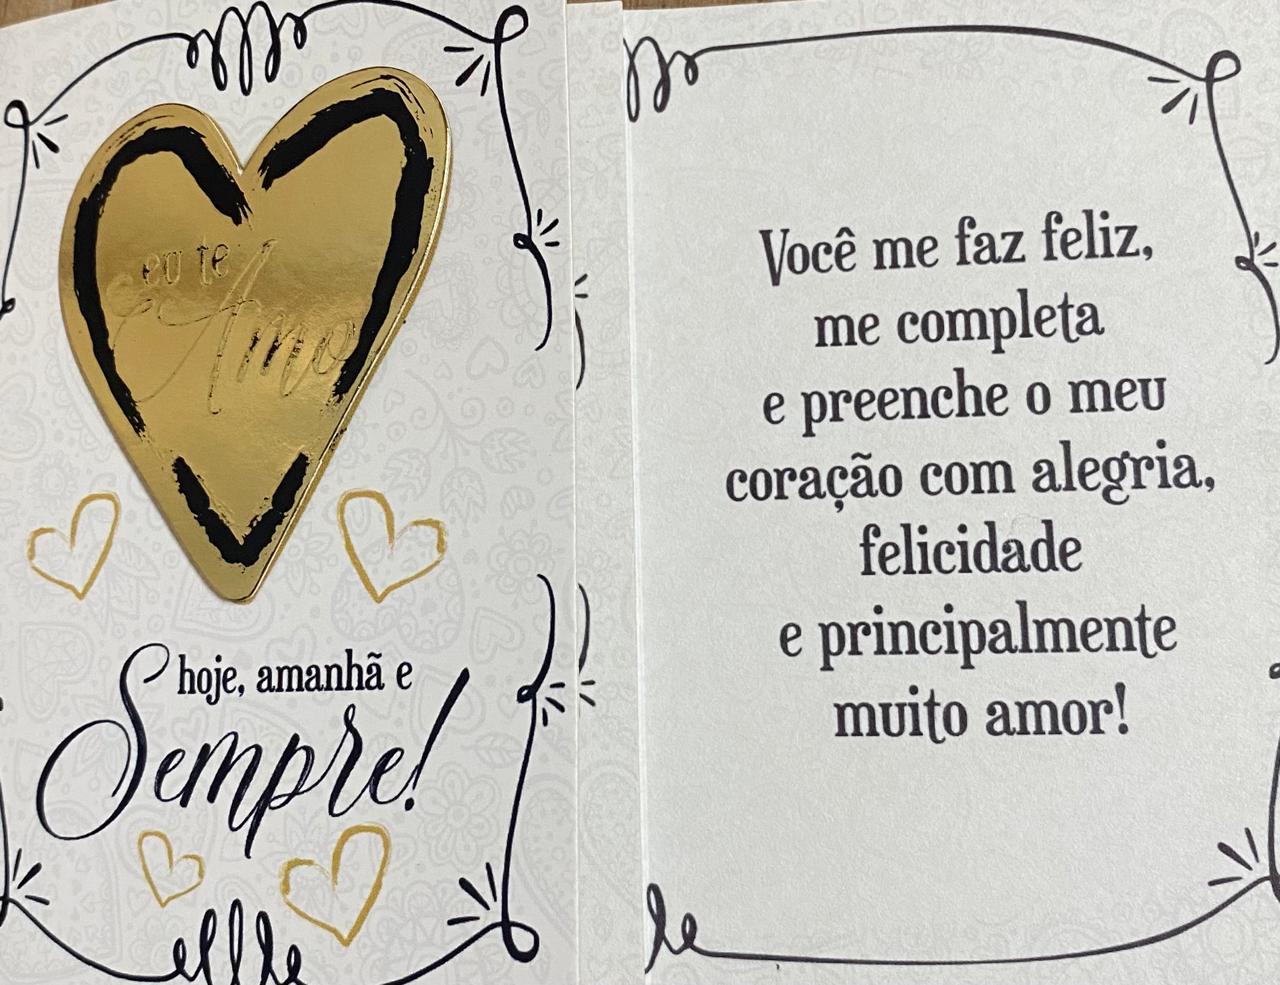 eu te
Amo
hoje, amanhã e
Sempre!
Você me faz feliz,
me completa
e preenche o meu
coração com alegria,
felicidade
e principalmente
muito amor!